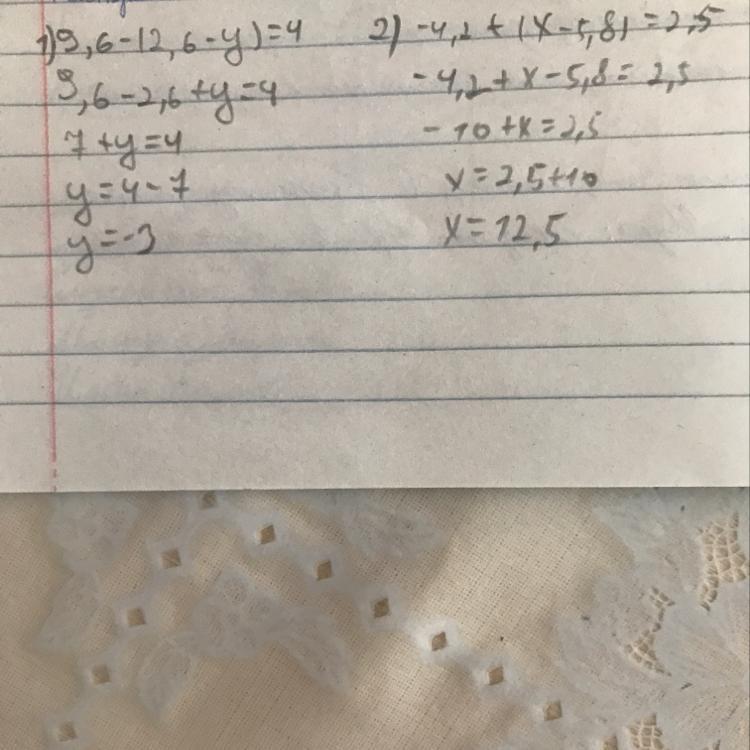 1) 9,6-(2,6-y)=4
9,6-2,6+y=4
7+y=4
y=4-7
y=-3
2) -4,2+(x-5,8)=2,5
-4,2+x-5,8=2,5
-10+x=2,5
x=2,5+10
x=12,5